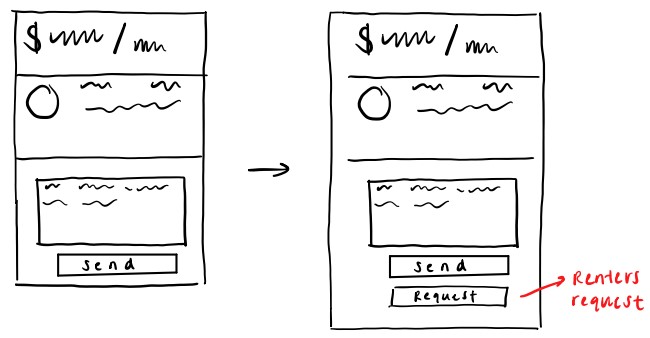 $ /
send
$ /
send
Request
Renters
request